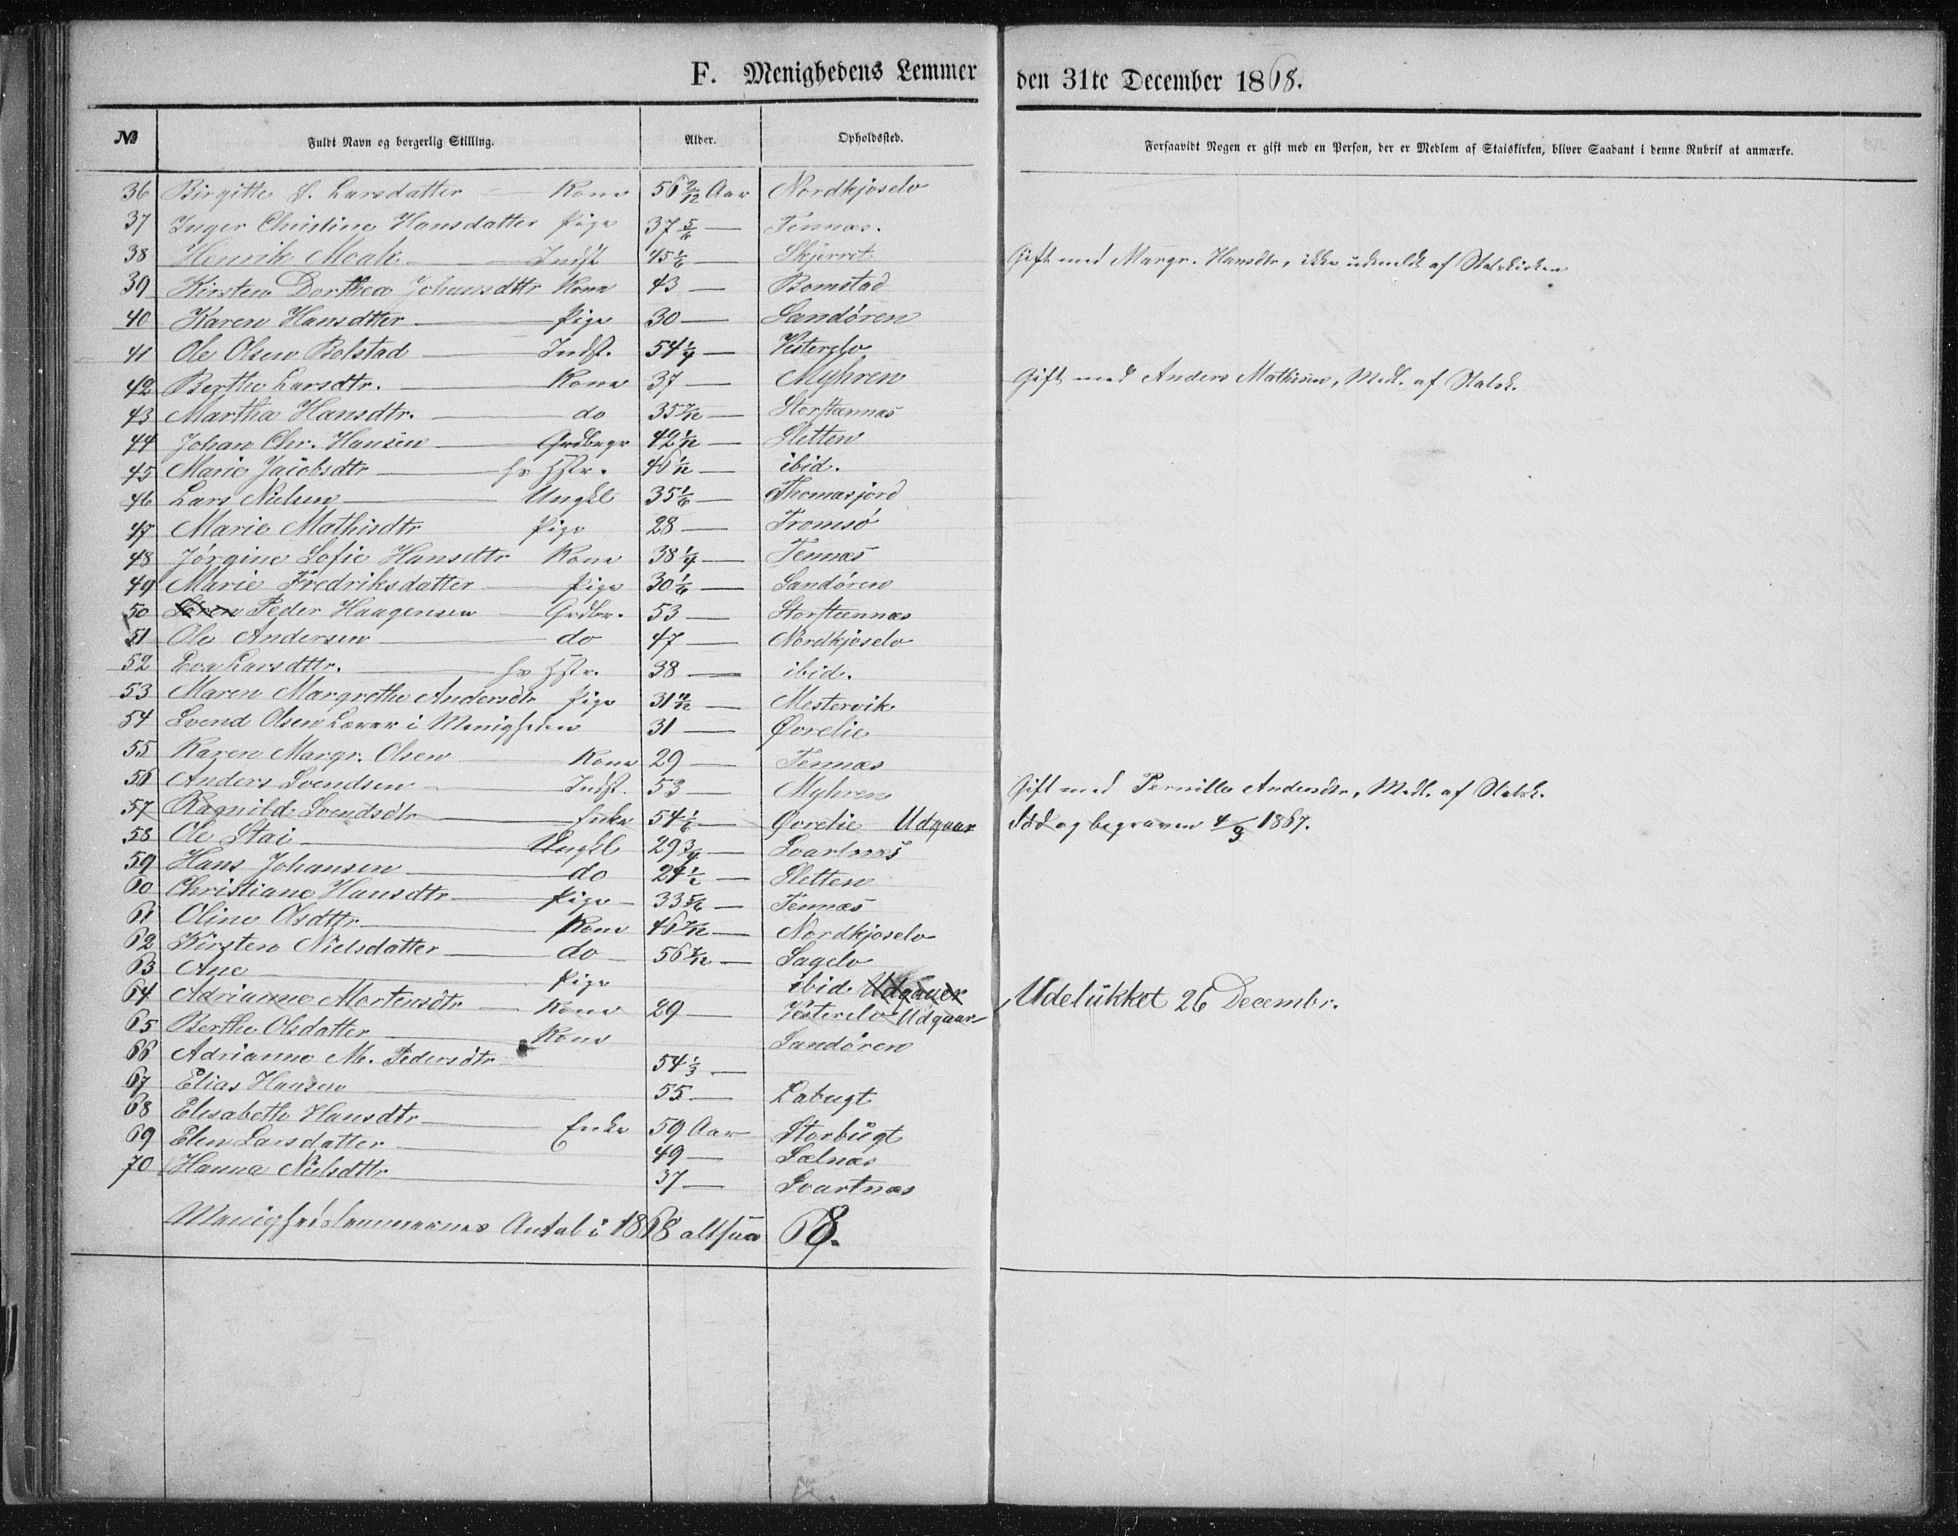 F. Menighedens Lemmer den 31te December 1868.
No Fuldt Navn og borgerlig Stilling. Alder. Opholdssted. Forsaavidt Nogen er gift med en Person, der er Medlem af Statskirken, bliver Saadant i denne Rubrik at anmærke.
36 Birgitte L. Larsdatter Kone 56 2/12 Aar Nordkjoselv
37 Inger Christine Hansdatter Pige 37 5/6 — Tennæs.
38 Henrik Indst 45 1/6 Skjerret Gift med Margr. Hansdtr, ikke udmeldt af Statskirken
39 Kirsten Dorthea Johansdttr Kone 43 — Bomstad
40 Karen Hansdtter Pige 30 — Sandøren
41 Ole Olsen Bolstad Indst. 54 1/4 — Vesterelv
42 Berthe Larsdtr. Kone 37 — Myhren Gift med Anders Mathisen, Medl. af Statsk.
43 Martha Hansdtr. do 35 7/12 — Storstennæs
44 Johan Chr. Hansen Grdbrgr 42 1/12 — Sletten
45 Marie Jacobsdtr hs Hstr. 46 1/12 — ibid.
46 Lars Nielsen Ungkl 35 1/6 — Thomasjord
47 Marie Mathisdtr Pige 28 — Tromsö
48 Jørgine Sofie Hansdtr Kone 38 1/4 — Tennæs
49 Marie Fredriksdatter Pige 30 1/6 — Sandören
50 Peder Haagensen Grdbr. 53 — Storstennæs
51 Ole Andersen do 47 — Nordkjoselv
52 Eva Larsdttr. hs Hstr. 38 — ibid.
53 Maren Margrethe Andersdtr Pige 31 — Mestervik
54 Svend Olsen Lærer i Menigheden 31 — Øvrelie
55 Karen Margr. Olsen Kone 29 — Tennæs
56 Anders Svendsen Indst. 53 — Myhren Gift med Pernille Andersdtr, Medl. af Statsk.
57 Ragnild Svendsdtr Enke 54 1/6 — Øvrelie Udgaar Død og begraven 4/9 1867.
58 Ole Stai Ungkl 29 3/4 — Svartnæs
59 Hans Johansen do 24 1/2 — Sletten
60 Christiane Hansdtr Pige 33 5/6 — Tennæs
61 Oline Olsdttr Kone 46 7/12 — Nordkjoselv
62 Kirsten Nielsdatter do 56 7/12 — Sagelv
63 Ane Pige ibid. Udgaaer
64 Adrianne Mortensdtr Kone 29 — Vesterelv Udgaar Udelukket 26 Decembr.
65 Berthe Olsdatter Kone Sandören
66 Adrianne M. Pedersdtr 54 1/3 —
67 Elias Hansen 55 — Labugt
68 Elisabeth Hansdtr Enke 59 Aar Storbugt
69 Elen Larsdatter 49 — Sælnæs
70 Hanna Nielsdttr 37 — Svartnæs
Menighedslemmernes Antal i 1868 altsaa 68.